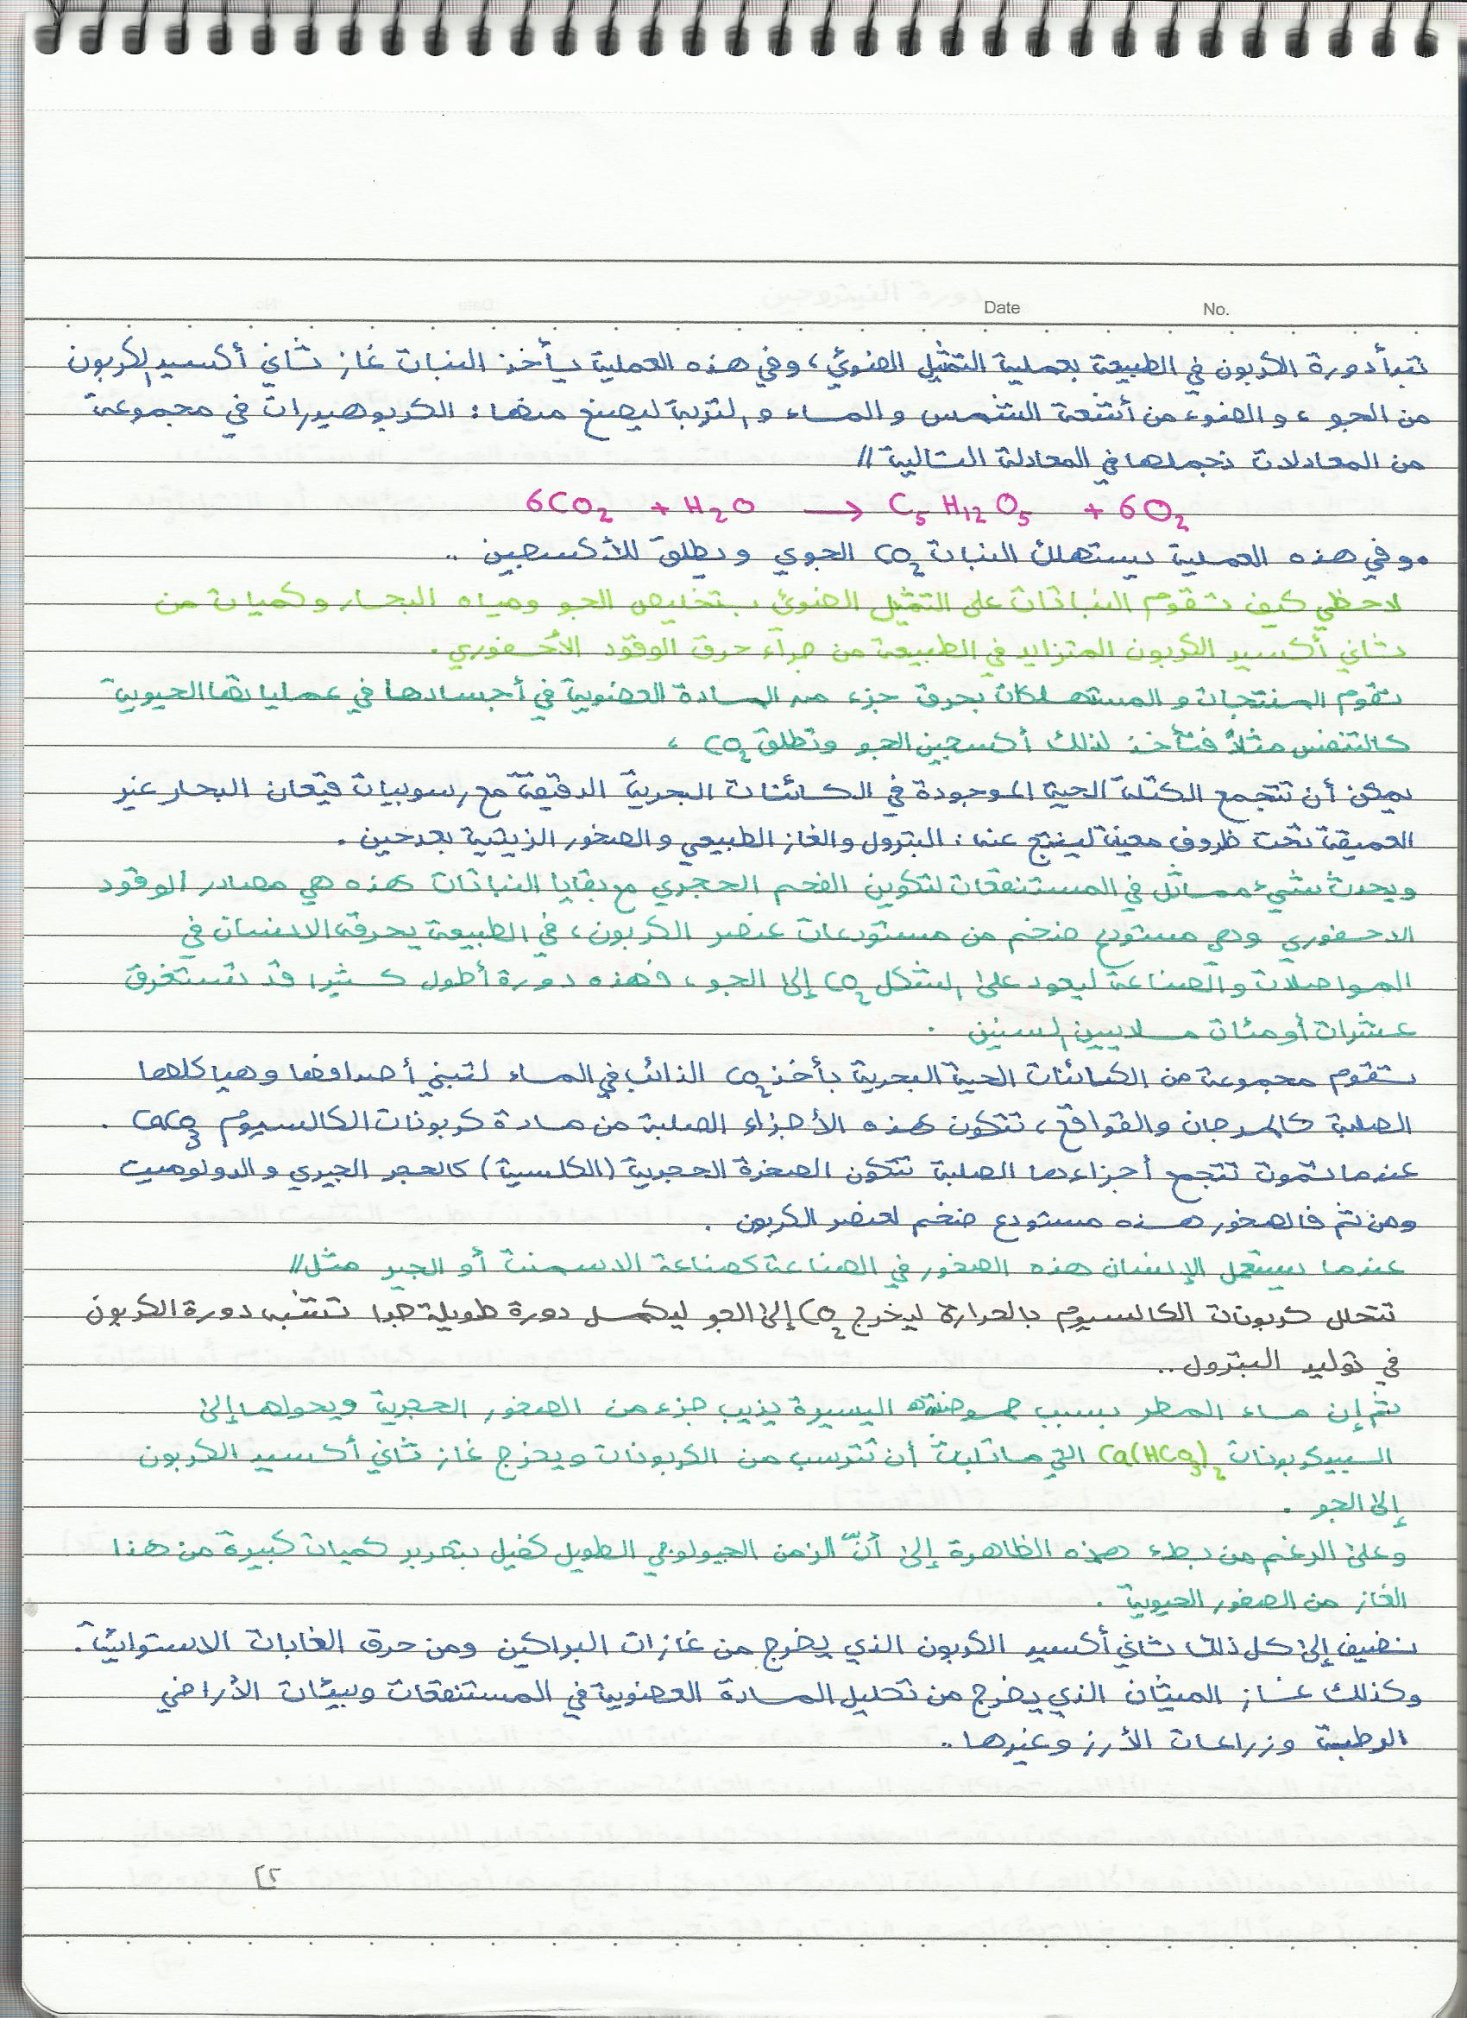 Date No.
تبدأ دورة الكربون في الطبيعة بعملية التمثيل الضوئي، وفي هذه العملية يأخذ النبات غاز ثاني أكسيد الكربون
من الجو، والضوء من أشعة الشمس والماء و التربة ليصنع منها: الكربوهيدرات في مجموعة
من المعادلات نجملها في المعادلة التالية //
6CO2 + H2O → C5H12O5 + 6O2
•وفي هذه العملية يستهلك النبات CO2 الجوي ويطلق للأكسجين ..
لاحظي كيف تقوم النباتات على التمثيل الضوئي بتخليص الجو ومياه البحار وكميات من
ثاني أكسيد الكربون المتزايد في الطبيعة من جراء حرق الوقود الأحفوري .
تقوم المنتجات و المستهلكات بحرق جزء من المادة العضوية في أجسادها في عملياتها الحيوية
كالتنفس مثلاً فتأخذ لذلك أكسجين الجو وتطلق CO2 ،
يمكن أن تتجمع الكتلة الحية الموجودة في الكائنات البحرية الدقيقة مع رسوبيات قيعان البحار غير
العميقة تحت ظروف معينة لينتج عنه : البترول والغاز الطبيعي والصخور الزيتية بعد حين .
ويحدث شيء مماثل في المستنقعات لتكوين الفحم الحجري مع بقايا النباتات هذه هي مصادر الوقود
الاحفوري وهي مستودع ضخم من مستودعات عنصر الكربون، في الطبيعة يحرقه الانسان في
المواصلات والصناعة ليعود على الشكل CO2 إلى الجو، فهذه دورة أطول كثيرا قد تستغرق
عشرات أو مئات ملايين السنين .
تقوم مجموعة من الكائنات الحية البحرية بأخذ CO2 الذائب في الماء لتبني أصدافها وهياكلها
الصلبة كالمرجان والقواقع، تتكون هذه الأجزاء الصلبة من مادة كربونات الكالسيوم CaCO3 .
عندما تموت تتجمع أجزاءها الصلبة تتكون الصخرة الحجرية (الكلسية) كالحجر الجيري والدولوميت
ومن ثم فالصخور هذه مستودع ضخم لعنصر الكربون .
عندما يستعمل الإنسان هذه الصخور في الصناعة كصناعة الاسمنت أو الجير مثل //
تتحلل كربونات الكالسيوم بالحرارة ليخرج CO2 إلى الجو ليكمل دورة طويلة جدا تشبه دورة الكربون
في توليد البترول ..
ثم إن ماء المطر بسبب حموضته اليسيرة يذيب جزء من الصخور الحجرية ويحولها إلى
البيكربونات Ca(HCO3)2 التي ماتلبث أن تترسب من الكربونات ويخرج غاز ثاني أكسيد الكربون
إلى الجو .
وعلى الرغم من بطء هذه الظاهرة إلى أنّ الزمن الجيولوجي الطويل كفيل بتحرير كميات كبيرة من هذا
الغاز من الصخور الحيوية .
نضيف إلى كل ذلك ثاني أكسيد الكربون الذي يخرج من غازات البراكين ومن حرق الغابات الاستوائية .
وكذلك غاز الميثان الذي يخرج من تحليل المادة العضوية في المستنقعات وبيئات الأراضي
الرطبة وزراعات الأرز وغيرها ..